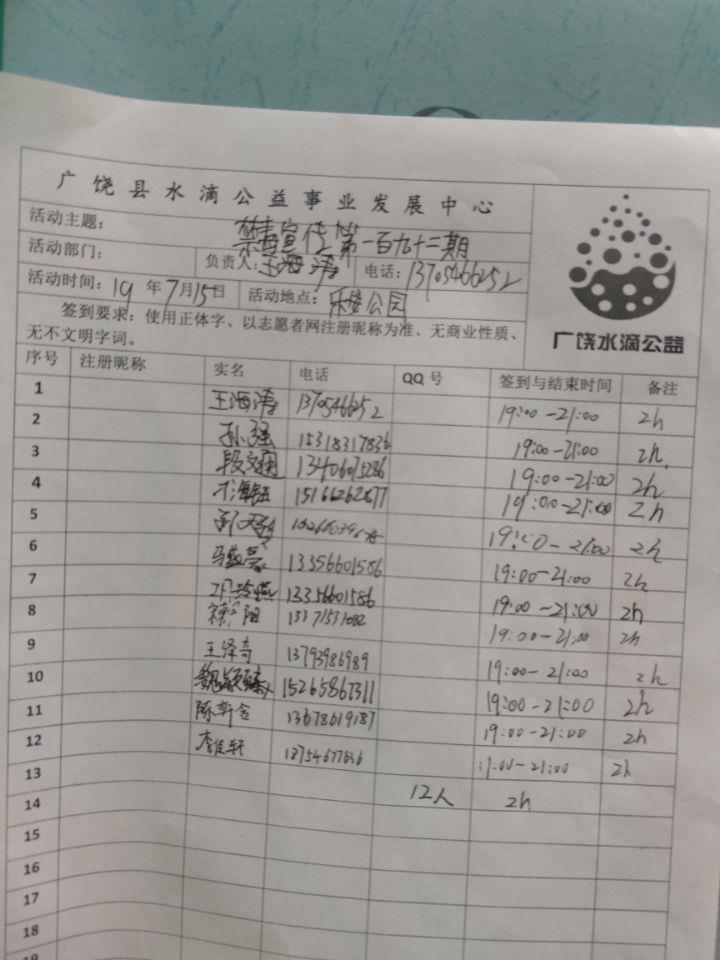 广饶县水滴公益事业发展中心
活动主题： 禁毒宣传第一百九十二期
活动部门： 负责人：王海涛 电话：13705466252
活动时间：19年7月15日 活动地点：乐安公园
签到要求：使用正体字、以志愿者网注册昵称为准、无商业性质、
无不文明字词。
广饶水滴公益
序号 注册昵称 实名 电话 QQ号 签到与结束时间 备注
1 王海涛 13705466252 19:00-21:00 2h
2 孙强 15318317836 19:00-21:00 2h
3 13406075286 19:00-21:00 2h
4 15166262877 19:00-21:00 2h
5 19:00-21:00 2h
6 马盛亮 13356601586 19:00-21:00 2h
7 13356601586 19:00-21:00 2h
8 19:00-21:00 2h
9 王泽奇 13793986989 19:00-21:00 2h
10 15265867311 19:00-21:00 2h
11 13678619187 19:00-21:00 2h
12 李佳轩 18754677636 19:00-21:00 2h
13
14 12人 2h
15
16
17
18
19